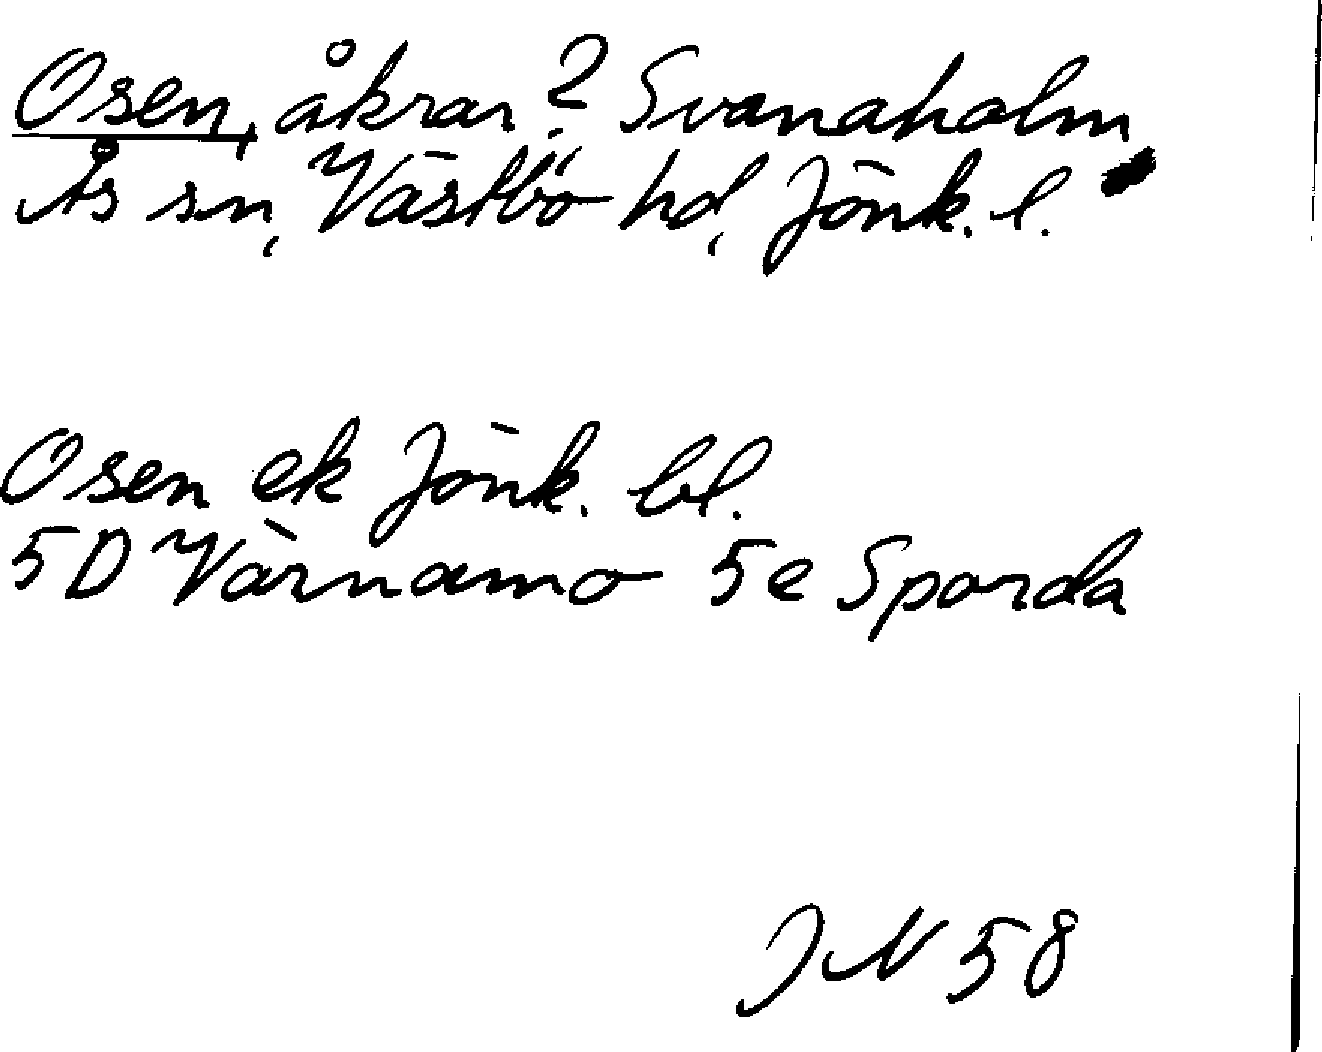 Osen, åkrar? Svanaholm
Ås sn, Västbo hd, Jönk. l.
Osen ek Jönk. bl.
5D Värnamo 5e Sporda
JN 58